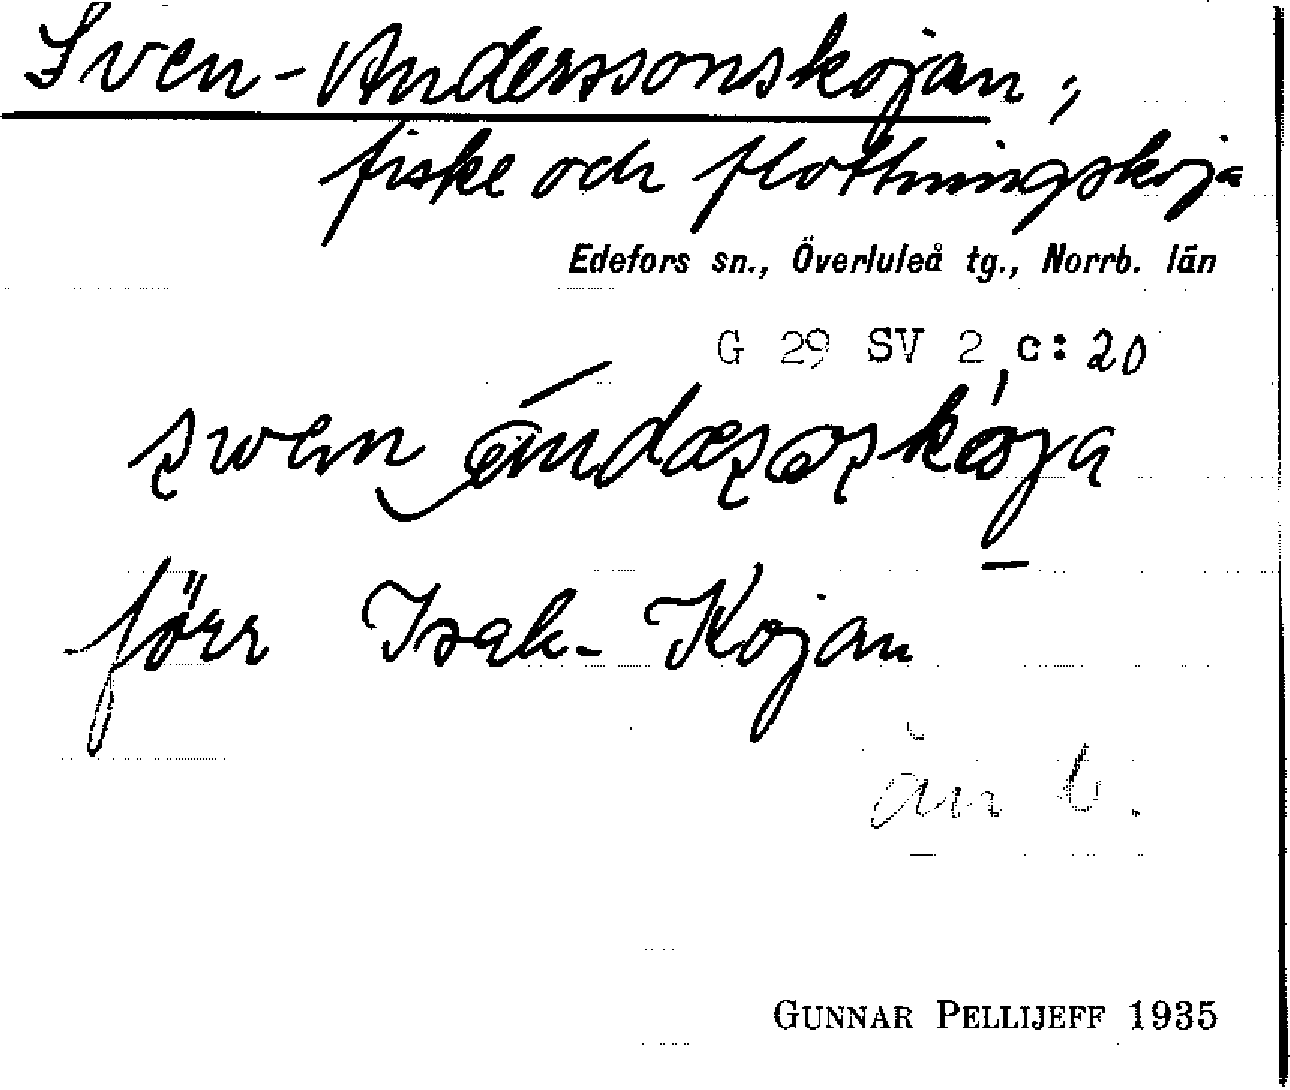 Sven-Anderssonskojan,
fiske och flottningskoja
Edefors sn., Överluleå tg., Norrb. län
G 29 SV 2 c:20
förr Isak-Kojan
GUNNAR PELLIJEFF 1935